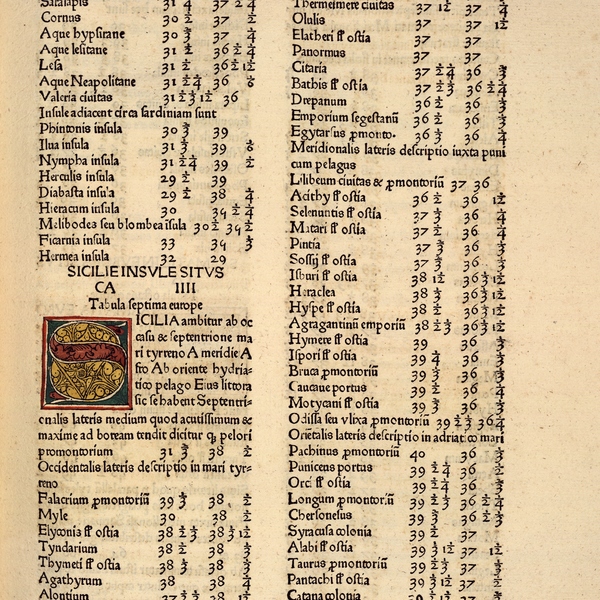 Saralapis 31 ¼ 37 ½ ¼
Cornus 30 ½ 37 ½
Aque hypsitane 30 ⅓ 37 ¼
Aque lesitane 31 ½ 36 ½ ¼
Lesa 31 ½ 36 ½ 1/12
Aque Neapolitane 31 ½ ¼ 36 ⅙
Valeria ciuitas 31 ½ ⅓ 1/12 36
Insule adiacent circa sardiniam sunt
Phintonis insula 30 ⅔ 39
Ilua insula 31 ⅓ 39 ⅙
Nympha insula 31 ½ ¼ 39 ½
Herculis insula 29 ½ 39
Diabasta insula 29 ½ 38 ¼
Hieracum insula 30 34 ½ ¼
Melibodes seu blombea isula 30 ½ 34 ½
Ficarnia insula 33 34 ⅓
Hermea insula 32 29
SICILIE INSVLE SITVS
CA IIII
Tabula septima europe
SICILIA ambitur ab oc
casu & septentrione ma
ri tyrreno A meridie A
fro Ab oriente hydria⸗
tico pelago Eius littora
sic se habent Septentri⸗
onalis lateris medium quod acutissimum &
maxime ad boream tendit dicitur ꝙ pelori
promontorium 31 ⅓ 38 ½
Occidentalis lateris descriptio in mari tyr⸗
reno
Falacrium ꝓmontoriū 39 ⅓ 38 ½
Myle 30 38 ½
Elyconis fl̄ ostia 38 ½ ⅓ 38 ⅓ 1/12
Tyndarium 38 ½ 38 ⅓
Thymeti fl̄ ostia 38 ⅓ 38 ⅓
Agathyrum 38 38 ¼
Alontium 37 ½ ⅓ 38 1/12
Thermesimere ciuitas 37 1/12 37 ¼
Olulis 37 37 1/12
Elatheri fl̄ ostia 37 37
Panormus 37 37
Citaria 37 ½ ¼ 36 ⅔
Bathis fl̄ ostia 37 ½ ⅓ 36 ½ ¼
Drepanum 36 ½ 36 ⅔
Emporium segestanū 36 ⅓ 36 ⅔
Egytarsus ꝓmonto. 36 ⅓ 36 ¼
Meridionalis lateris descriptio iuxta puni
cum pelagus
Lilibeum ciuitas & ꝓmontoriū 37 36
Acithy fl̄ ostia 36 ½ 36 1/12
Selenuntis fl̄ ostia 37 ⅓ 36 ¼
Matari fl̄ ostia 37 ½ 36 ¼
Pintia 37 ⅔ 36 ⅓
Sossij fl̄ ostia 37 ⅔ 36 ⅓
Isburi fl̄ ostia 38 1/12 36 ⅓ 1/12
Heraclea 38 ⅓ 36 ⅓ 1/12
Hypse fl̄ ostia 38 ½ 36 ⅓ 1/12
Agragantinū emporiū 38 ½ ⅓ 36 ⅓ 1/12
Hymere fl̄ ostia 39 36 ⅓
Ispori fl̄ ostia 39 ¼ 36 ⅓
Bruca ꝓmontoriū 39 ⅓ 36 ⅓
Caucane portus 39 ½ 36 ¼
Motycani fl̄ ostia 39 ⅔ 36 ⅓
Odissa seu vlixa ꝓmontoriū 39 ½ ⅓ 36 ¼
Oriētalis lateris descriptio in adriatico mari
Pachinus ꝓmontoriū 40 36 ⅓
Puniceus portus 39 ½ ¼ 36 ½
Orci fl̄ ostia 39 ½ ¼ 36 ⅔
Longum ꝓmontoriū 39 ⅔ 36 ½ ¼
Chersonesus 39 ⅔ 36 ½ ⅓
Syracusa colonia 39 ½ 37
Alabi fl̄ ostia 39 ⅓ 1/12 37 1/12
Taurus ꝓmontoriū 39 ½ ⅓ 37 ¼
Pantachi fl̄ ostia 39 ⅓ 1/12 37 ¼
Catana colonia